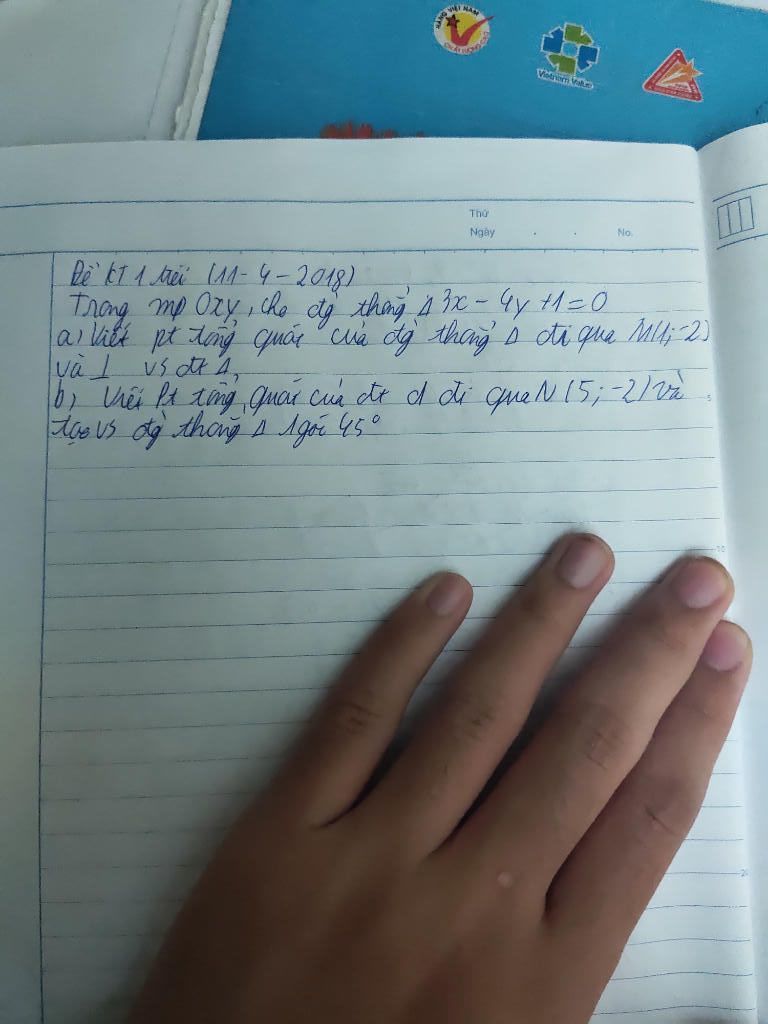 HÀNG VIỆT NAM
CHẤT LƯỢNG CAO
Vietnam Value
Thứ
Ngày . . No.
Đề KT 1 tiết (11-4-2018)
Trong mp Oxy, cho đg thẳng Δ 3x - 4y +1 = 0
a) Viết pt tổng quát của đg thẳng Δ đi qua M(1;-2)
và ⊥ vs đt Δ,
b) Viết Pt tổng quát của đt d đi qua N (5;-2) và
tạo vs đg thẳng Δ 1 góc 45°